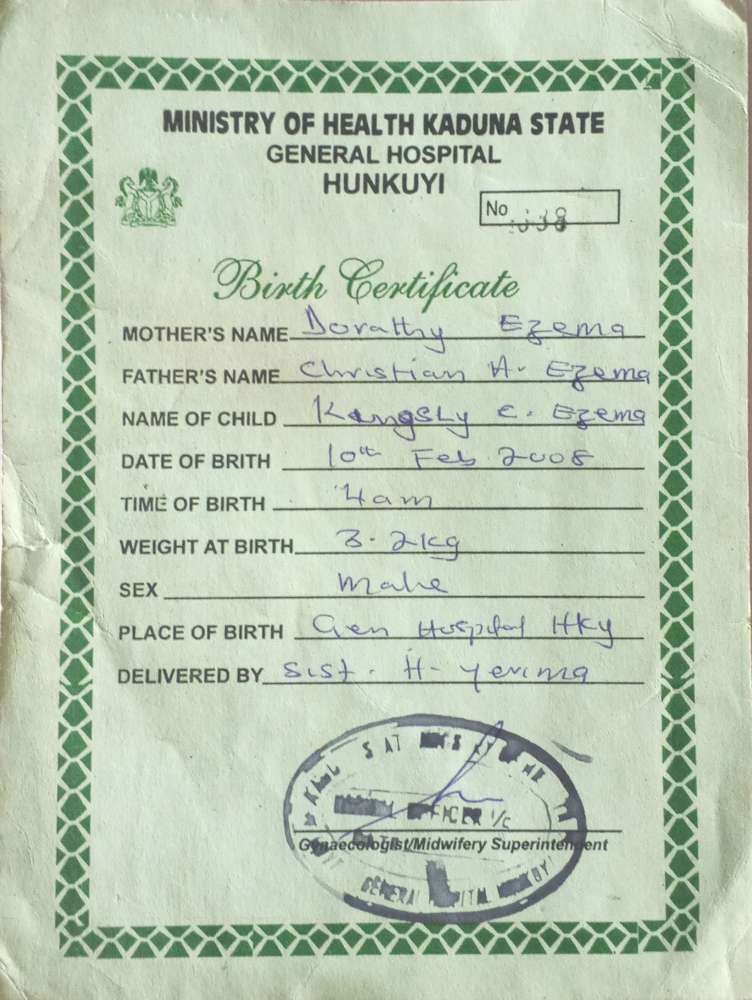 MINISTRY OF HEALTH KADUNA STATE
GENERAL HOSPITAL
HUNKUYI
No 338
Birth Certificate
MOTHER'S NAME Dorathy Ezema
FATHER'S NAME Christian A. Ezema
NAME OF CHILD Kangsly C. Ezema
DATE OF BRITH 10th Feb 2008
TIME OF BIRTH 4am
WEIGHT AT BIRTH 3.2kg
SEX Male
PLACE OF BIRTH Gen Hospital HKY
DELIVERED BY Sist. H. Yerima
OFFICER I/C
Gynaecologist/Midwifery Superintendent
GENERAL HOSPITAL HUNKUYI